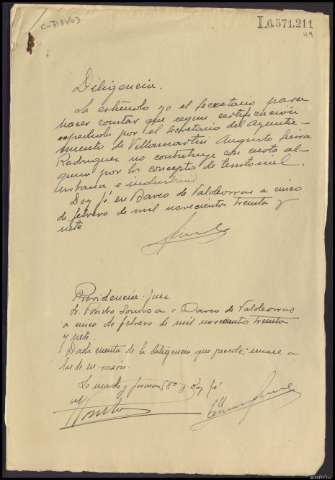 L.6.571.211
Diligencia.
La extiendo yo el Secretario para
hacer constar que según certificación
expedida por el Secretario del Ayunta-
miento de Villamartín Augusto
Rodriguez no contribuye con cuota al-
guna por los conceptos de territorial,
urbana e industrial
Doy fé en Barco de Valdeorras a cinco
de febrero de mil novecientos treinta y
siete
Providencia: Juez
Barco de Valdeorras
a cinco de febrero de mil novecientos treinta
y siete.
Dada cuenta de la diligencia que precede; únase a
Lo mandó y firma Sª. Doy fé